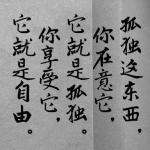 孤独这东西，
你在意它，
它就是孤独。
你享受它，
它就是自由。